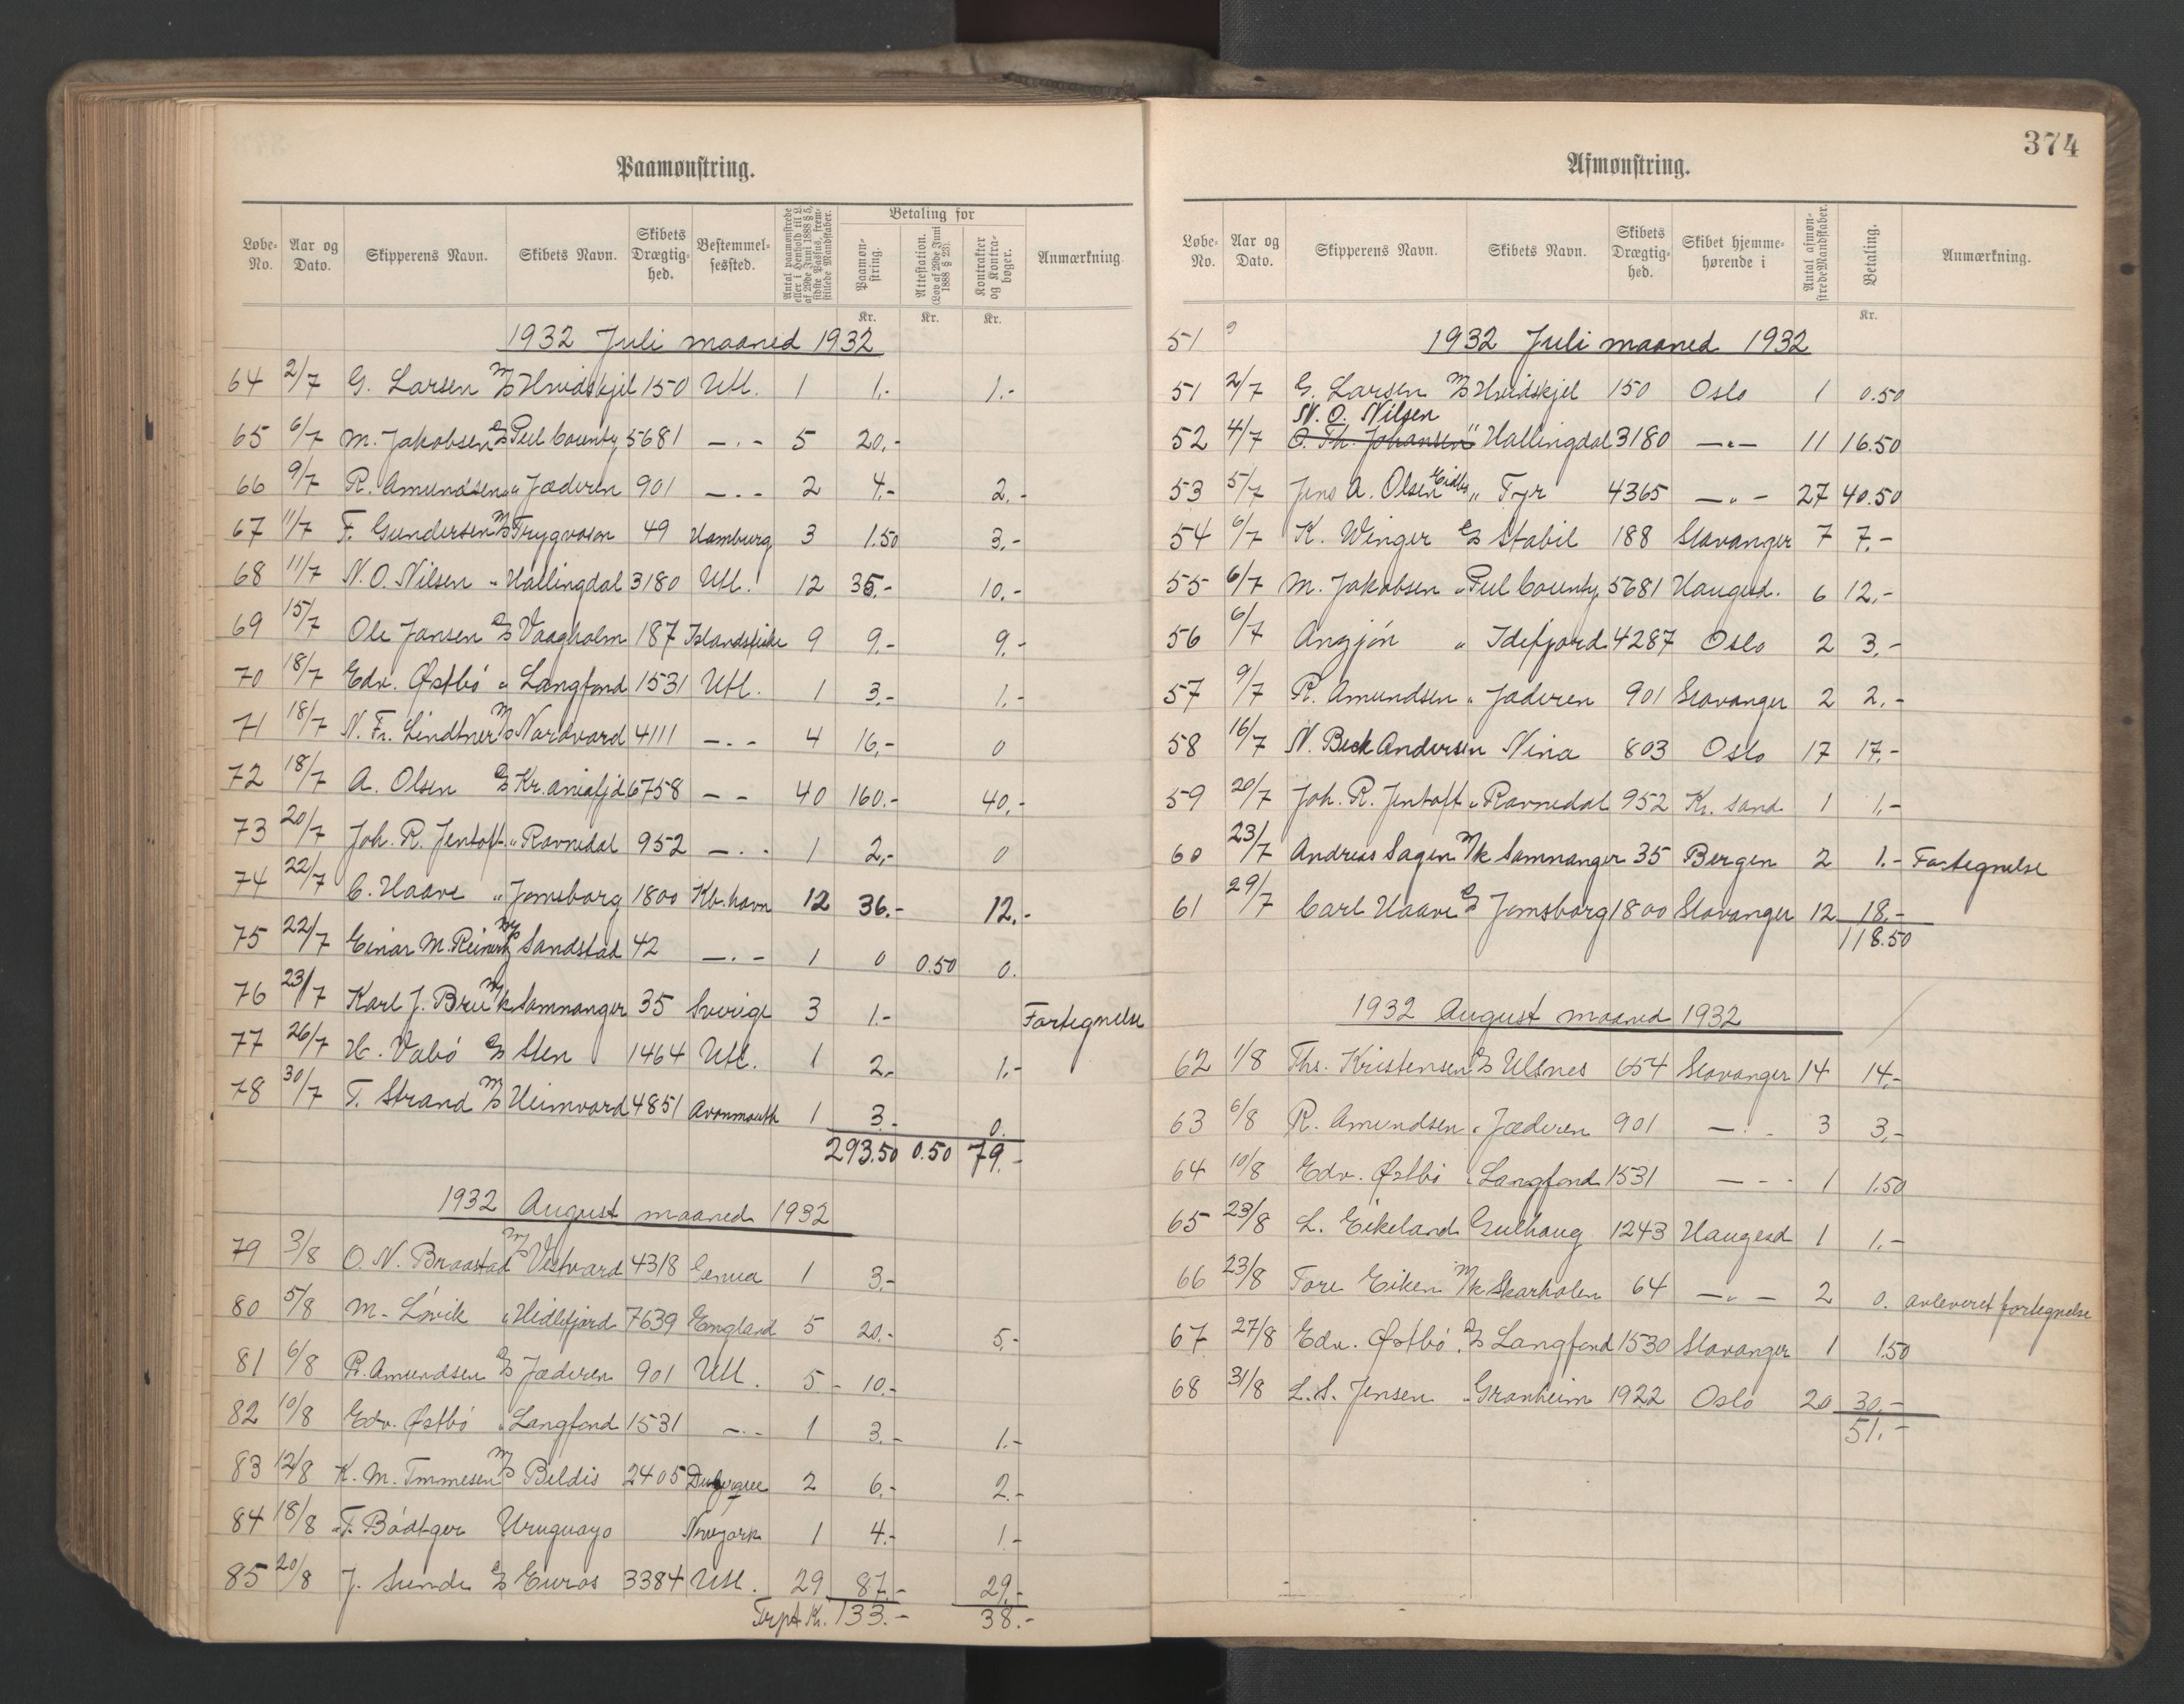 Paamønstring.
Løbe-No. Aar og Dato. Skipperens Navn. Skibets Navn. Skibets Drægtighed. Bestemmelsessted. Antal paamønstrede eller i Henhold til L. af 29de Juni 1888 § 5, sidste Passus, fremstillede Mandskaber. Betaling for Paamønstring. Attestation. (Lov af 29de Juni 1888 § 23). Kontrakter og Kontrabøger. Anmærkning.
Kr. Kr. Kr.
1932 Juli maaned 1932
64 2/7 G. Larsen M/S Hvidskjel 150 Utl. 1 1.- 1.-
65 6/7 M. Jakobsen S/S Peel County 5681 -.- 5 20.-
66 9/7 R. Amundsen " Jæderen 901 -.- 2 4.- 2.-
67 11/7 F. Gundersen M/S Trygvason 49 Hamburg 3 1.50 3.-
68 11/7 N. O. Nilsen " Hallingdal 3180 Utl. 12 35.- 10.-
69 15/7 Ole Jansen S/S Vaagholm 187 Islandsfiske 9 9.- 9.-
70 18/7 Edv. Østbö " Langfond 1531 Utl. 1 3.- 1.-
71 18/7 N. Fr. Lindtner M/S Nordvard 4111 -.- 4 16.- 0
72 18/7 A. Olsen S/S Kr.aniafjd 6758 - - 40 160.- 40.-
73 20/7 Joh. R. Jentoft " Ravnedal 952 -.- 1 2.- 0
74 22/7 C. Haave " Jomsborg 1800 Kb.havn 12 36.- 12.-
75 22/7 Einar M. Reinertz M/S Sandstad 42 -.- 1 0 0.50 0.
76 23/7 Karl J. Bru M/k Samnanger 35 Sverige 3 1.- Fortegnelse
77 26/7 H. Vabö S/S Sten 1464 Utl. 1 2.- 1.-
78 30/7 T. Strand M/S Heimvard 4851 Avonmouth 1 3.- 0.
293.50 0.50 79.-
1932 August maaned 1932
79 3/8 O. N. Braastad M/S Vestvard 4318 Genua 1 3.-
80 5/8 M. Lövik " Hidlefjord 7639 England 5 20.- 5.-
81 6/8 R. Amundsen S/S Jæderen 901 Utl. 5 - 10.-
82 10/8 Edv. Østbö " Langfond 1531 -.- 1 3.- 1.-
83 12/8 K. M. Tmmesen M/S Beldis 2405 2 6.- 2.-
84 18/8 F. Bödtger Uruguayo Newyork 1 4.- 1.-
85 20/8 J. Sunde S/S Euros 3384 Utl. 29 87.- 29.-
Trpt Kr. 133.- 38.-
374
Afmønstring.
Løbe-No. Aar og Dato. Skipperens Navn. Skibets Navn. Skibets Drægtighed. Skibet hjemmehørende i Antal afmønstrede Mandskaber. Betaling. Anmærkning.
Kr.
51 1932 Juli maaned 1932
51 2/7 G. Larsen M/S Hvidskjel 150 Oslo 1 0.50
N. O. Nilsen
52 4/7 O. Th. Johansen " Hallingdal 3180 -"- 11 16.50
53 5/7 Jens A. Olsen " Tyr 4365 -"- 27 40.50
54 6/7 K. Winger S/S Stabil 188 Stavanger 7 7.-
55 6/7 M. Jakobsen " Peel County 5681 Haugesd. 6 12.-
56 6/7 Angjön " Idefjord 4287 Oslo 2 3.-
57 9/7 R. Amundsen " Jæderen 901 Stavanger 2 2.-
58 16/7 N. Beck Andersen Nina 803 Oslo 17 17.-
59 20/7 Joh. R. Jentoft " Ravnedal 952 Kr. sand 1 1.-
60 23/7 Andreas Sagen M/k Samnanger 35 Bergen 2 1.- Fortegnelse
61 29/7 Carl Haave S/S Jomsborg 1800 Stavanger 12 18.-
118.50
1932 August maaned 1932
62 1/8 Ths. Kristensen S/S Ulsnes 654 Stavanger 14 14.-
63 6/8 R. Amundsen " Jæderen 901 -.- 3 3.-
64 10/8 Edv. Østbö " Langfond 1531 - - - 1 1.50
65 23/8 L. Eikeland Gulhaug 1243 Haugesd 1 1.-
66 23/8 Tore Eiken M/k Skarholm 64 -"- 2 0. avleveret fortegnelse
67 27/8 Edv. Østbö S/S Langfond 1530 Stavanger 1 1.50
68 31/8 L. S. Jensen " Granheim 1922 Oslo 20 30.-
51.-